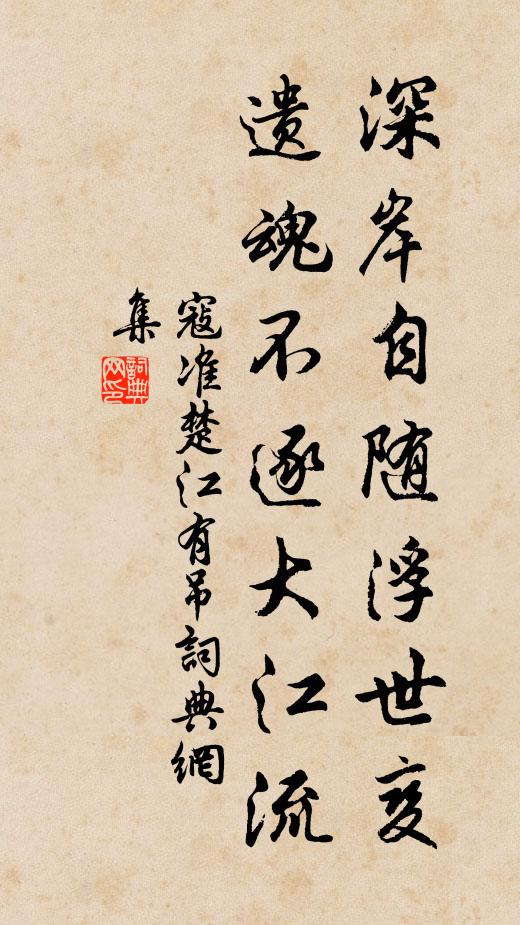 深岸自随浮世变
遗魂不逐大江流
寇准楚江有吊詞典網
集
詞典网印